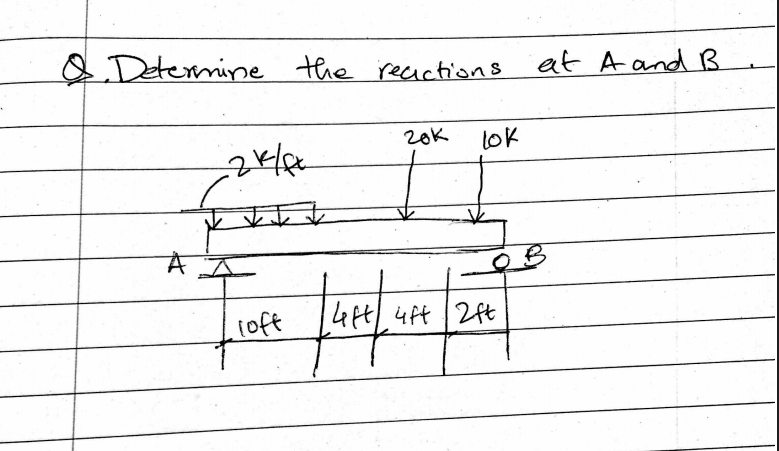 Q. Determine the reactions at A and B.
20K 10K
2 K/ft
A B
10ft 4ft 4ft 2ft